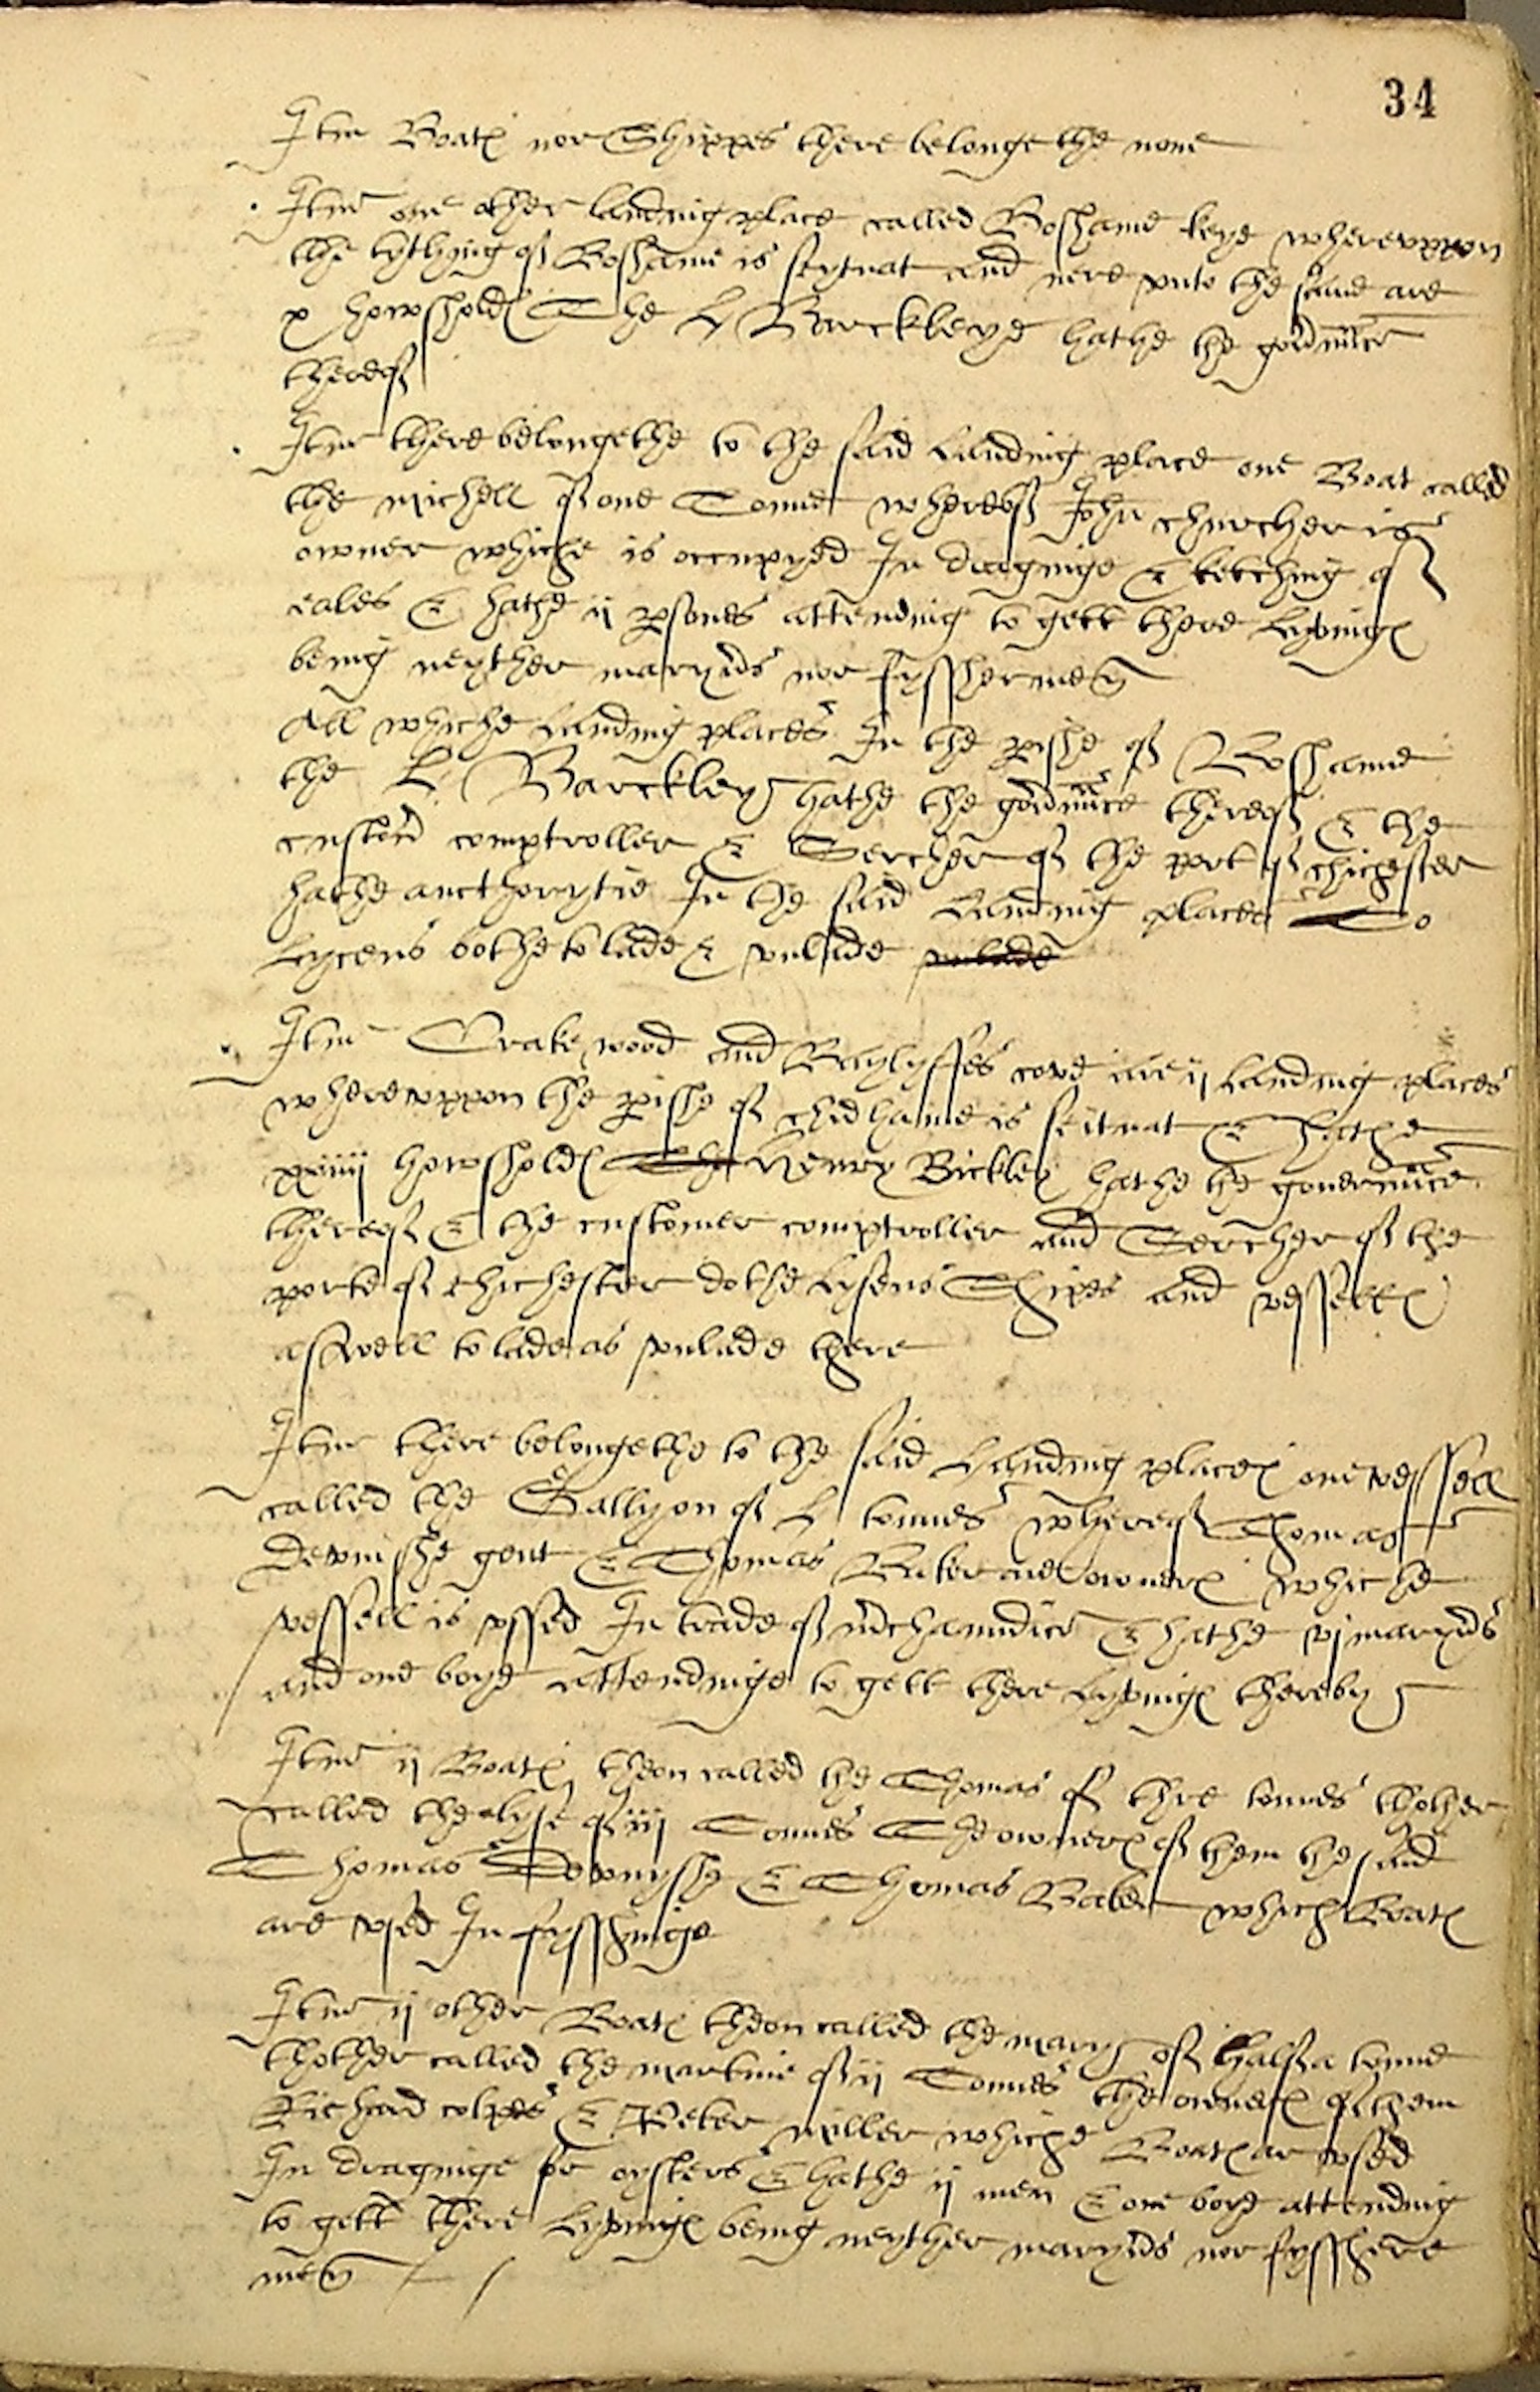 34
Itm Boates nor Shippes there belongethe none
Itm one other landing place called Boshame keye whereuppon
the tythyng of Boshame is scytuat and nere unto the same are
x howsholdes The L Barckleye hathe the gov'nnce
thereof
Itm there belongethe to the said landing place one Boat called
the michell of one Tonne whereof John Churcher is
owner whiche is occupyed In dragginge & ketching of
eales & hathe ij psones attending to gett there lyvinges
being neyther maryn's nor fysshermen
All whiche landing places In the pishe of Boshame
the L Barckley hathe the gov'nnce thereof & the
custom' comptroller & Sercher of the port of chichester
hathe aucthorytie In the said landing places To
lycens bothe to lade & unlade unlade
Itm Crake wood and Baylyffes cove are ij landing places
whereuppon the pishe of chedhame is scituat & hathe
xxiiij howsholdes The Henry Bickley hathe the governnce
thereof & the customer comptroller and Sercher of the
porte of chichester dothe lysens Shipes and vesselles
aswell to lade as unlade there
Itm there belongethe to the said landing places one vessell
called the Gallyon of L tonnes whereof Thomas
Devnishe gent & Thomas Baker are owners whiche
vessell is ussed In trade of m'channdice & hathe vj maryn's
and one boye attendinge to gett there lyvinges thereby
Itm ij Boates theon called the Thomas of thre tonnes thother
called the of iij Tonnes The owners of them the said
Thomas Devnyshe & Thomas Baker which Boates
are used In fysshinge
Itm ij other Boates theon called the mary of halfe a tonne
thother called the martine of ij Tonnes the owners of them
Richard colpes & Peter miller whiche Boates ar used
In dragginge for oysters & hathe ij men & one boye attending
to gett there lyvinges being neyther maryn's nor fysshere
men